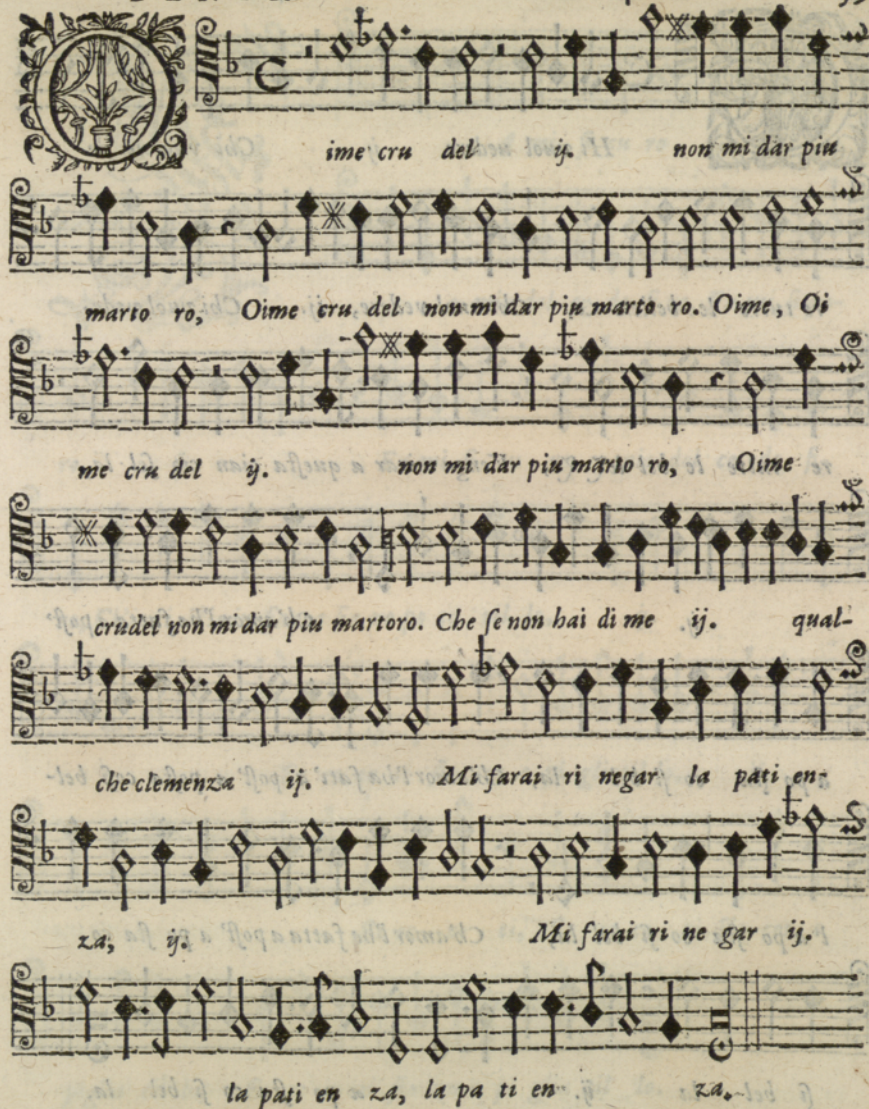 O ime cru del ij. non mi dar piu
marto ro, Oime cru del non mi dar piu marto ro. Oime, Oi
me cru del ij. non mi dar piu marto ro, Oime
crudel non mi dar piu martoro. Che ſe non hai di me ij. qual-
che clemenza ij. Mi farai ri negar la pati en-
za, ij. Mi farai ri ne gar ij.
la pati en za, la pa ti en za.